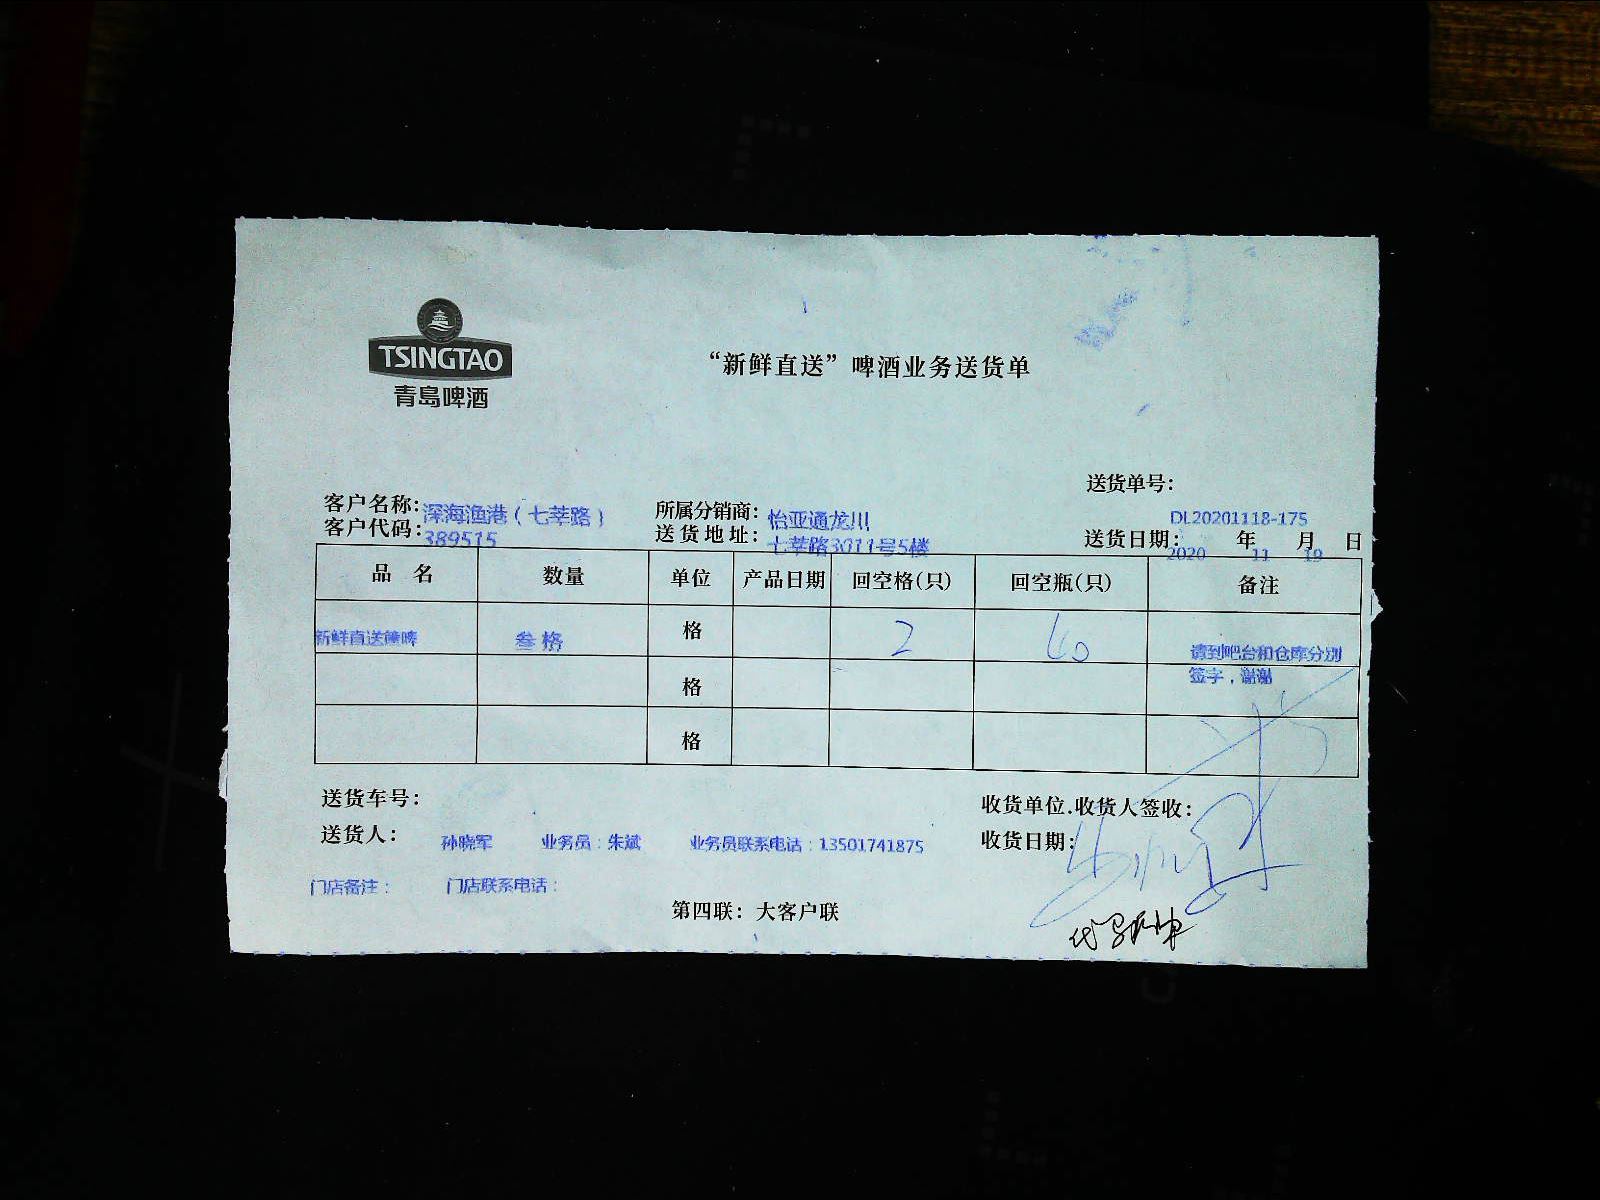 TSINGTAO
青岛啤酒
“新鲜直送”啤酒业务送货单
送货单号: DL20201118-175
客户名称: 深海渔港（七莘路） 所属分销商: 怡亚通龙川
客户代码: 389515 送货地址: 七莘路3011号5楼 送货日期: 2020 年 11 月 19 日
品 名 数量 单位 产品日期 回空格(只) 回空瓶(只) 备注
新鲜直送 叁格 格 2 60 请到吧台和仓库分别签字，谢谢
格
格
送货车号: 收货单位.收货人签收:
送货人: 孙晓军 业务员：朱斌 业务员联系电话：13501741875 收货日期:
门店备注： 门店联系电话：
第四联: 大客户联